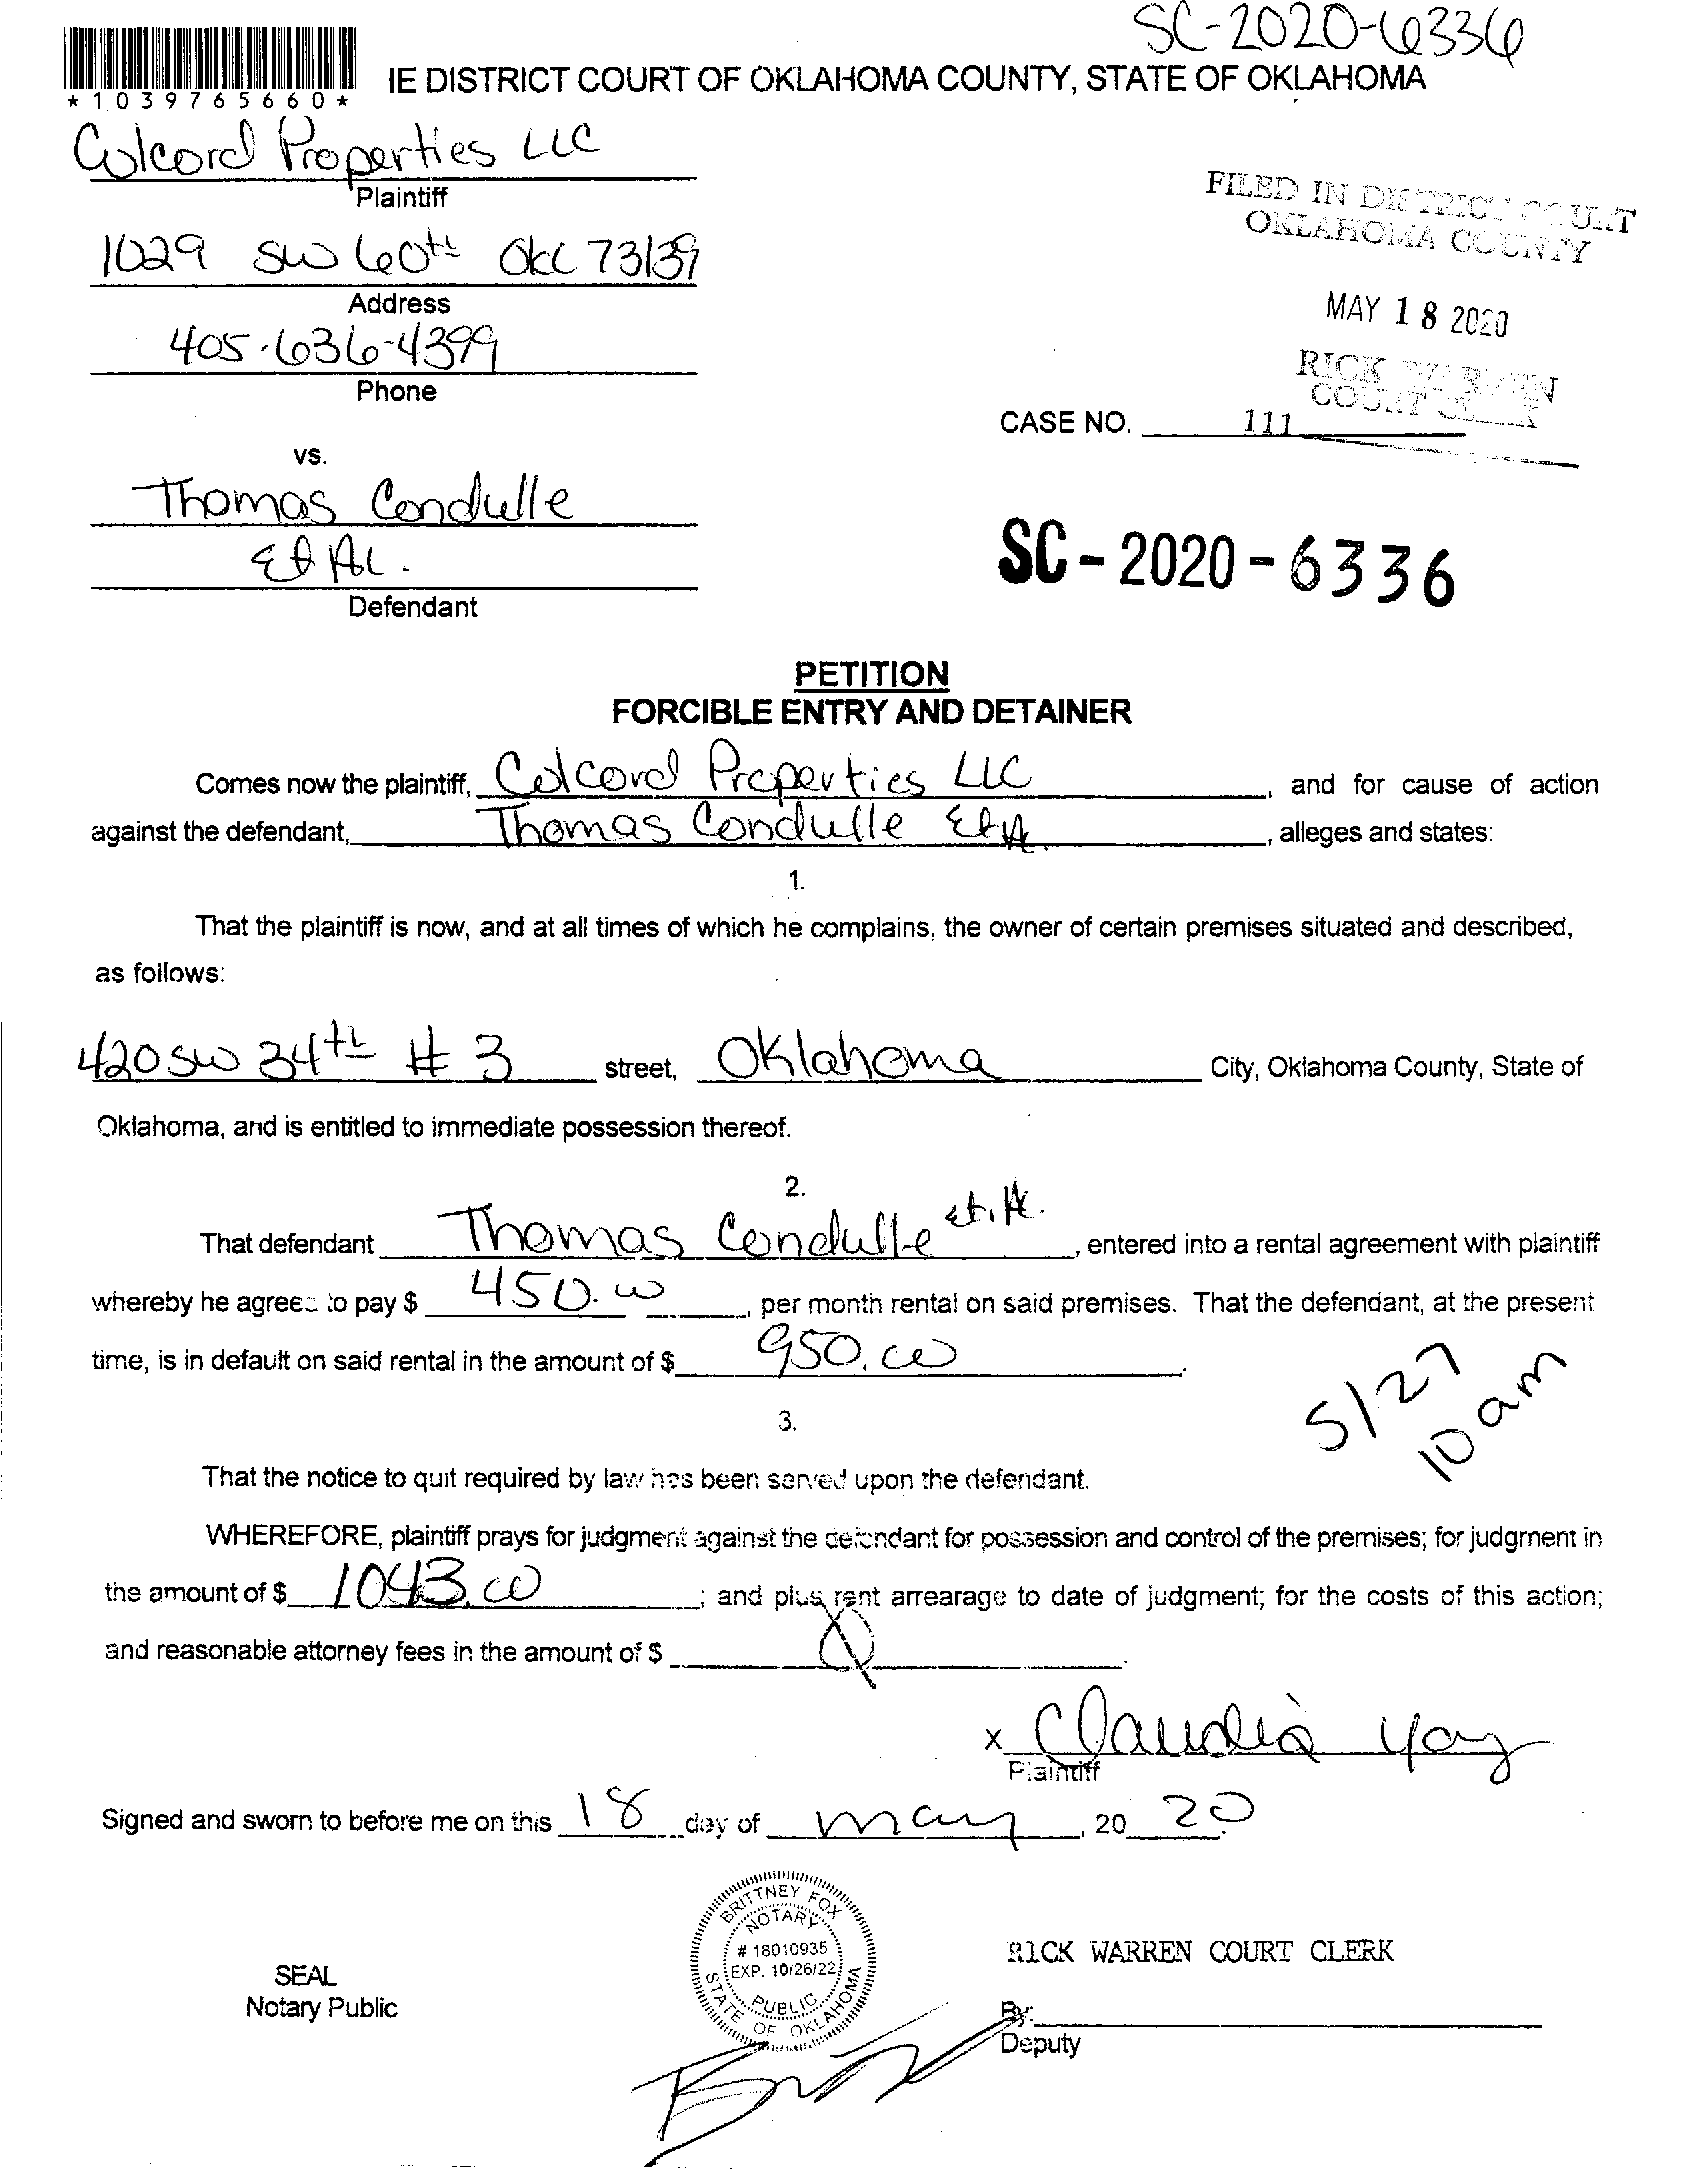 SC-2020-6336
IE DISTRICT COURT OF OKLAHOMA COUNTY, STATE OF OKLAHOMA
*1039765660*
Colcord Properties LLC
Plaintiff
1029 SW 60th OKC 73139
Address
405-636-4399
Phone
FILED IN DISTRICT COURT
OKLAHOMA COUNTY
MAY 18 2020
RICK WARREN
COURT CLERK
CASE NO. 111
vs.
Thomas Condulle
Et Al.
Defendant
SC-2020-6336
PETITION
FORCIBLE ENTRY AND DETAINER
Comes now the plaintiff, Colcord Properties LLC, and for cause of action
against the defendant, Thomas Condulle Et Al, alleges and states:
1.
That the plaintiff is now, and at all times of which he complains, the owner of certain premises situated and described,
as follows:
420 SW 34th # 3 street, Oklahoma City, Oklahoma County, State of
Oklahoma, and is entitled to immediate possession thereof.
2.
That defendant Thomas Condulle et. Al., entered into a rental agreement with plaintiff
whereby he agrees to pay $ 450.00, per month rental on said premises. That the defendant, at the present
time, is in default on said rental in the amount of $ 950.00.
5/27
10 am
3.
That the notice to quit required by law has been served upon the defendant.
WHEREFORE, plaintiff prays for judgment against the defendant for possession and control of the premises; for judgment in
the amount of $ 1043.00; and plus rent arrearage to date of judgment; for the costs of this action;
and reasonable attorney fees in the amount of $ 0.
x Claudia
Plaintiff
Signed and sworn to before me on this 18 day of may, 20 20
BRITTNEY FOX
NOTARY
# 18010935
EXP. 10/26/22
PUBLIC
STATE OF OKLAHOMA
RICK WARREN COURT CLERK
SEAL
Notary Public
By:
Deputy